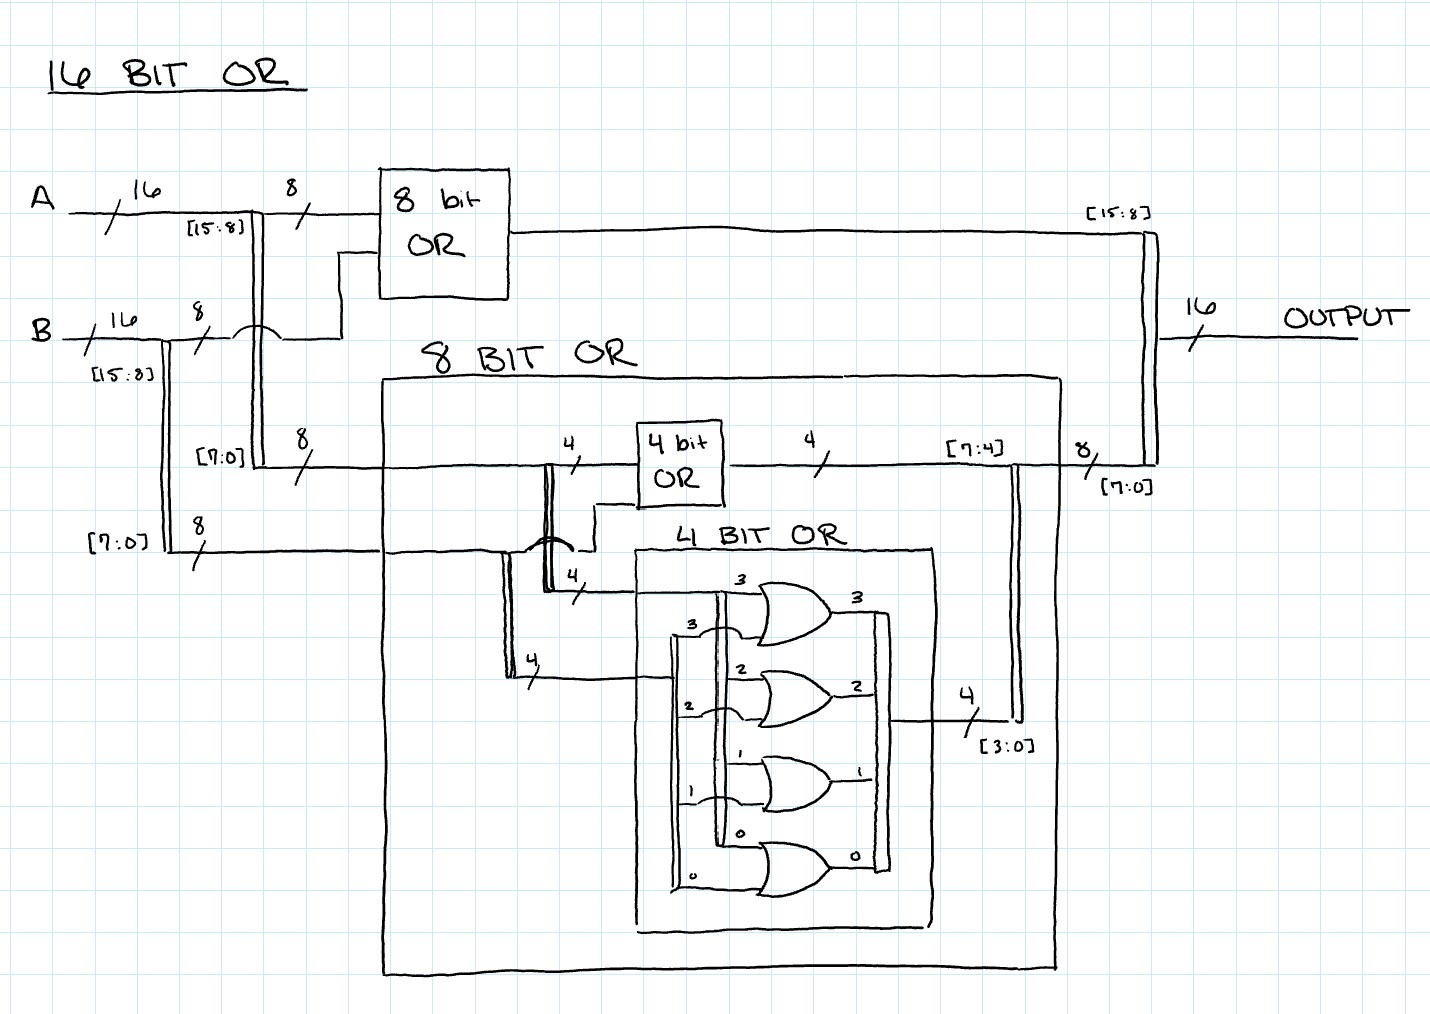 16 BIT OR
A
16
[15:8]
8
8 bit
OR
[15:8]
B
16
[15:8]
8
16
OUTPUT
8 BIT OR
[7:0]
8
4
4 bit
OR
4
[7:4]
8
[7:0]
[7:0]
8
4 BIT OR
4
3
3
3
4
2
2
2
4
[3:0]
1
1
1
0
0
0